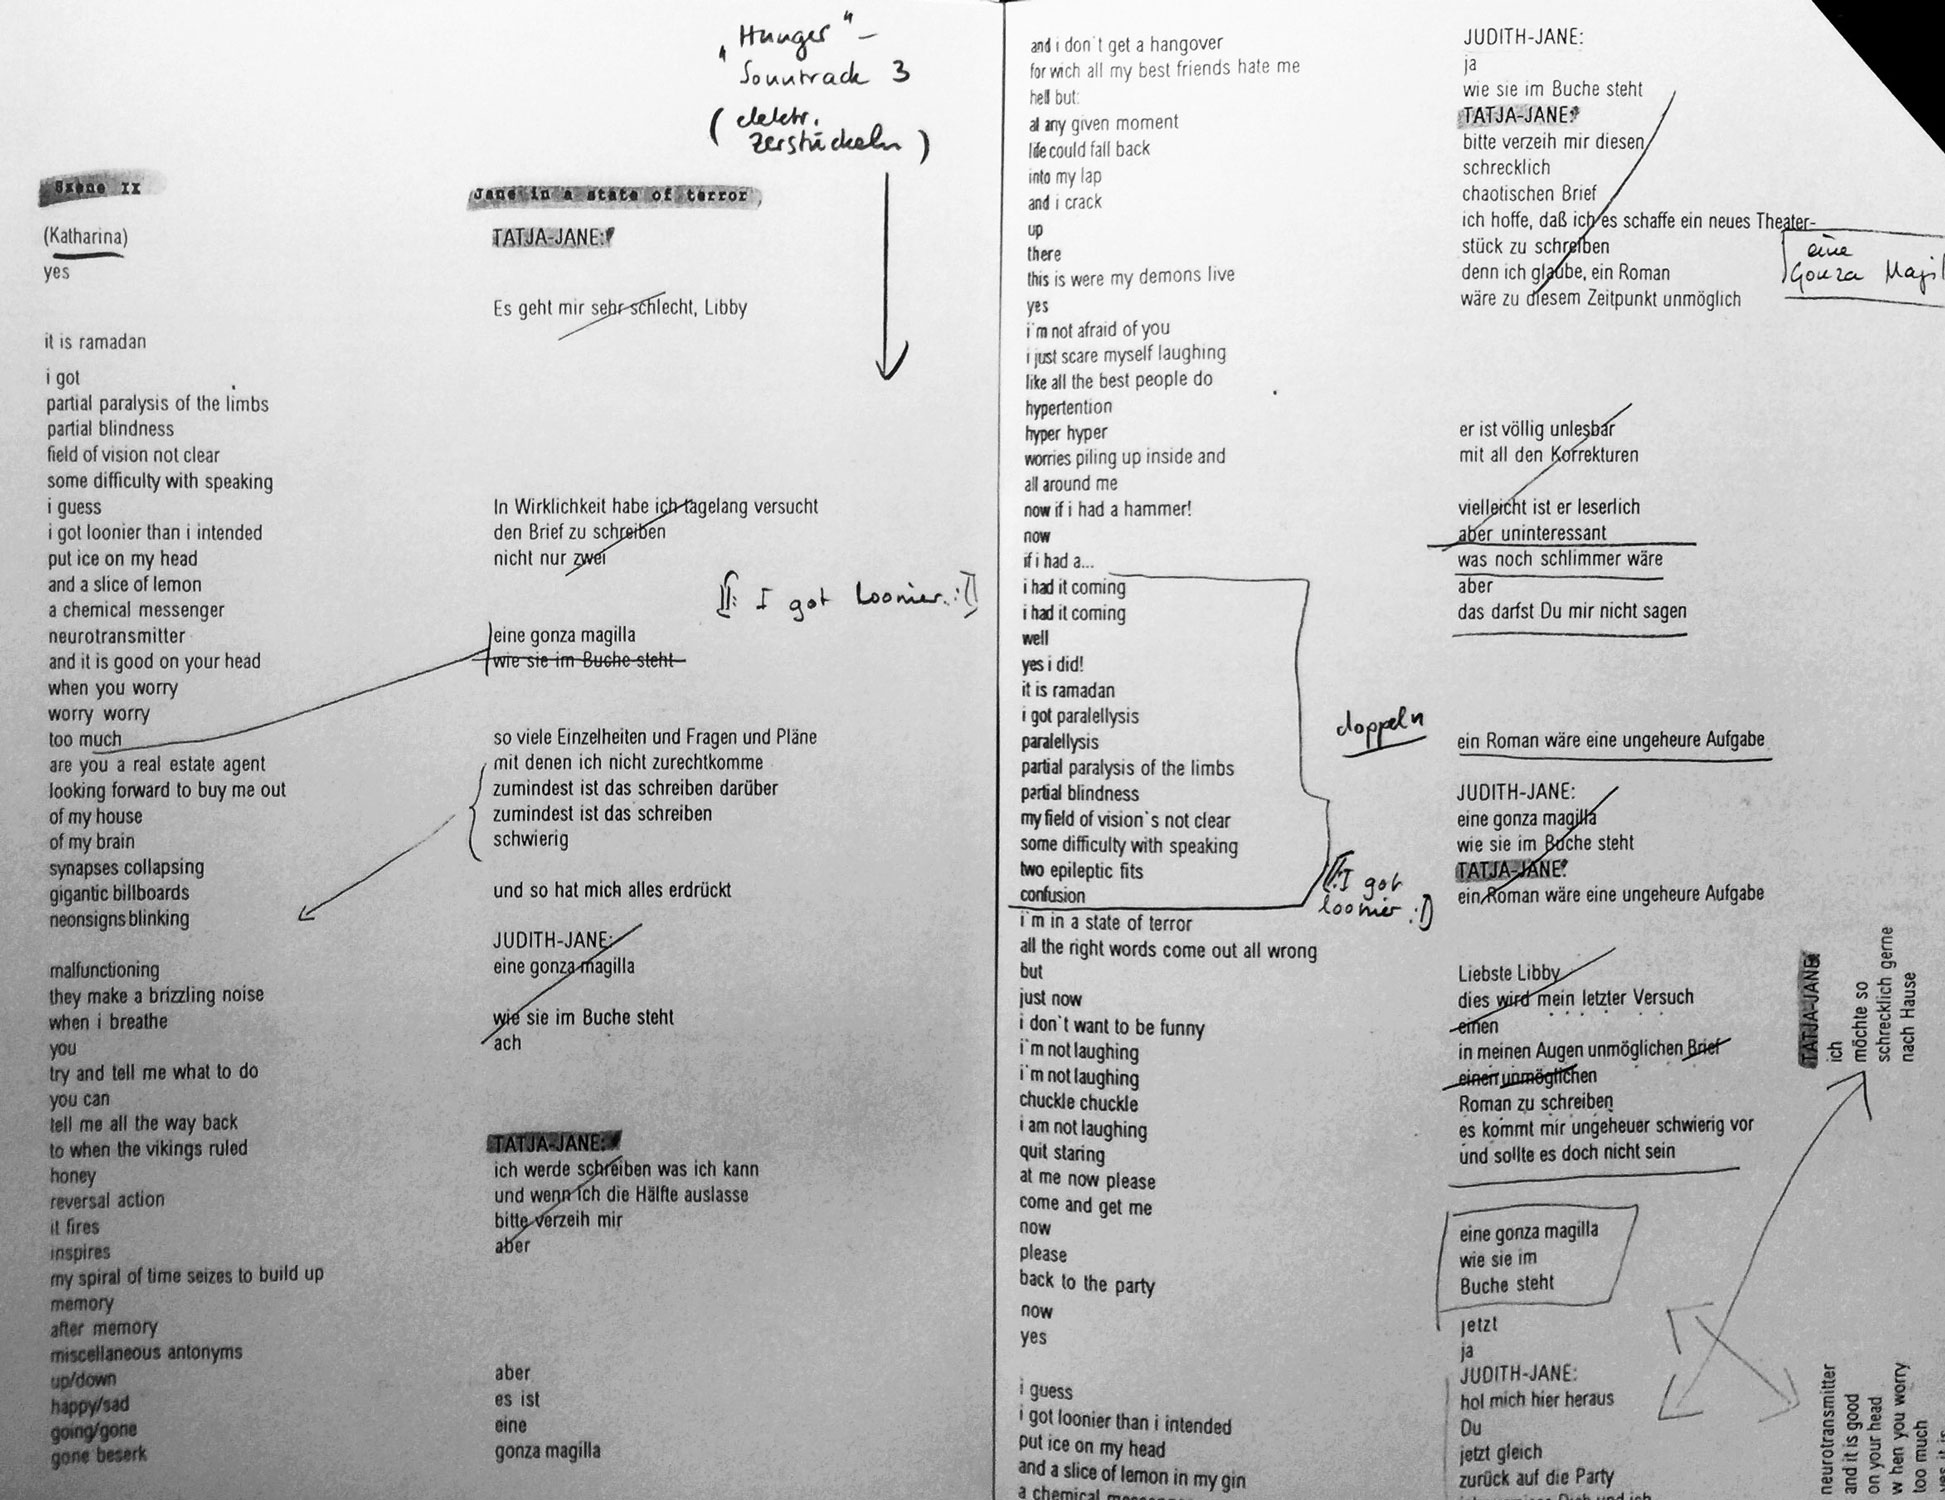 „Hunger" –
Sountrack 3
(elektr.
Zerstückeln)
Szene II
(Katharina)
yes
it is ramadan
i got
partial paralysis of the limbs
partial blindness
field of vision not clear
some difficulty with speaking
i guess
i got loonier than i intended
put ice on my head
and a slice of lemon
a chemical messenger
neurotransmitter
and it is good on your head
when you worry
worry worry
too much
are you a real estate agent
looking forward to buy me out
of my house
of my brain
synapses collapsing
gigantic billboards
neonsigns blinking
malfunctioning
they make a brizzling noise
when i breathe
you
try and tell me what to do
you can
tell me all the way back
to when the vikings ruled
honey
reversal action
it fires
inspires
my spiral of time seizes to build up
memory
after memory
miscellaneous antonyms
up/down
happy/sad
going/gone
gone beserk
Jane in a state of terror
TATJA-JANE:
Es geht mir sehr schlecht, Libby
In Wirklichkeit habe ich tagelang versucht
den Brief zu schreiben
nicht nur zwei
[|: I got loonier. :|]
eine gonza magilla
wie sie im Buche steht
so viele Einzelheiten und Fragen und Pläne
mit denen ich nicht zurechtkomme
zumindest ist das schreiben darüber
zumindest ist das schreiben
schwierig
und so hat mich alles erdrückt
JUDITH-JANE:
eine gonza magilla
wie sie im Buche steht
ach
TATJA-JANE:
ich werde schreiben was ich kann
und wenn ich die Hälfte auslasse
bitte verzeih mir
aber
aber
es ist
eine
gonza magilla
and i don`t get a hangover
for wich all my best friends hate me
hell but:
at any given moment
life could fall back
into my lap
and i crack
up
there
this is were my demons live
yes
i`m not afraid of you
i just scare myself laughing
like all the best people do
hypertention
hyper hyper
worries piling up inside and
all around me
now if i had a hammer!
now
if i had a...
i had it coming
i had it coming
well
yes i did!
it is ramadan
i got paralellysis
paralellysis
partial paralysis of the limbs
partial blindness
my field of vision`s not clear
some difficulty with speaking
two epileptic fits
confusion
i`m in a state of terror
all the right words come out all wrong
but
just now
i don`t want to be funny
i`m not laughing
i`m not laughing
chuckle chuckle
i am not laughing
quit staring
at me now please
come and get me
now
please
back to the party
now
yes
i guess
i got loonier than i intended
put ice on my head
and a slice of lemon in my gin
a chemical messenger
doppeln
[|: I got
loonier :|]
JUDITH-JANE:
ja
wie sie im Buche steht
TATJA-JANE:
bitte verzeih mir diesen
schrecklich
chaotischen Brief
ich hoffe, daß ich es schaffe ein neues Theater-
stück zu schreiben
denn ich glaube, ein Roman
wäre zu diesem Zeitpunkt unmöglich
eine
Gonza
er ist völlig unlesbar
mit all den Korrekturen
vielleicht ist er leserlich
aber uninteressant
was noch schlimmer wäre
aber
das darfst Du mir nicht sagen
ein Roman wäre eine ungeheure Aufgabe
JUDITH-JANE:
eine gonza magilla
wie sie im Buche steht
TATJA-JANE:
ein Roman wäre eine ungeheure Aufgabe
Liebste Libby
dies wird mein letzter Versuch
einen
in meinen Augen unmöglichen Brief
einen unmöglichen
Roman zu schreiben
es kommt mir ungeheuer schwierig vor
und sollte es doch nicht sein
eine gonza magilla
wie sie im
Buche steht
jetzt
ja
JUDITH-JANE:
hol mich hier heraus
Du
jetzt gleich
zurück auf die Party
TATJA-JANE:
ich
möchte so
schrecklich gerne
nach Hause
neurotransmitter
and it is good
on your head
w hen you worry
too much